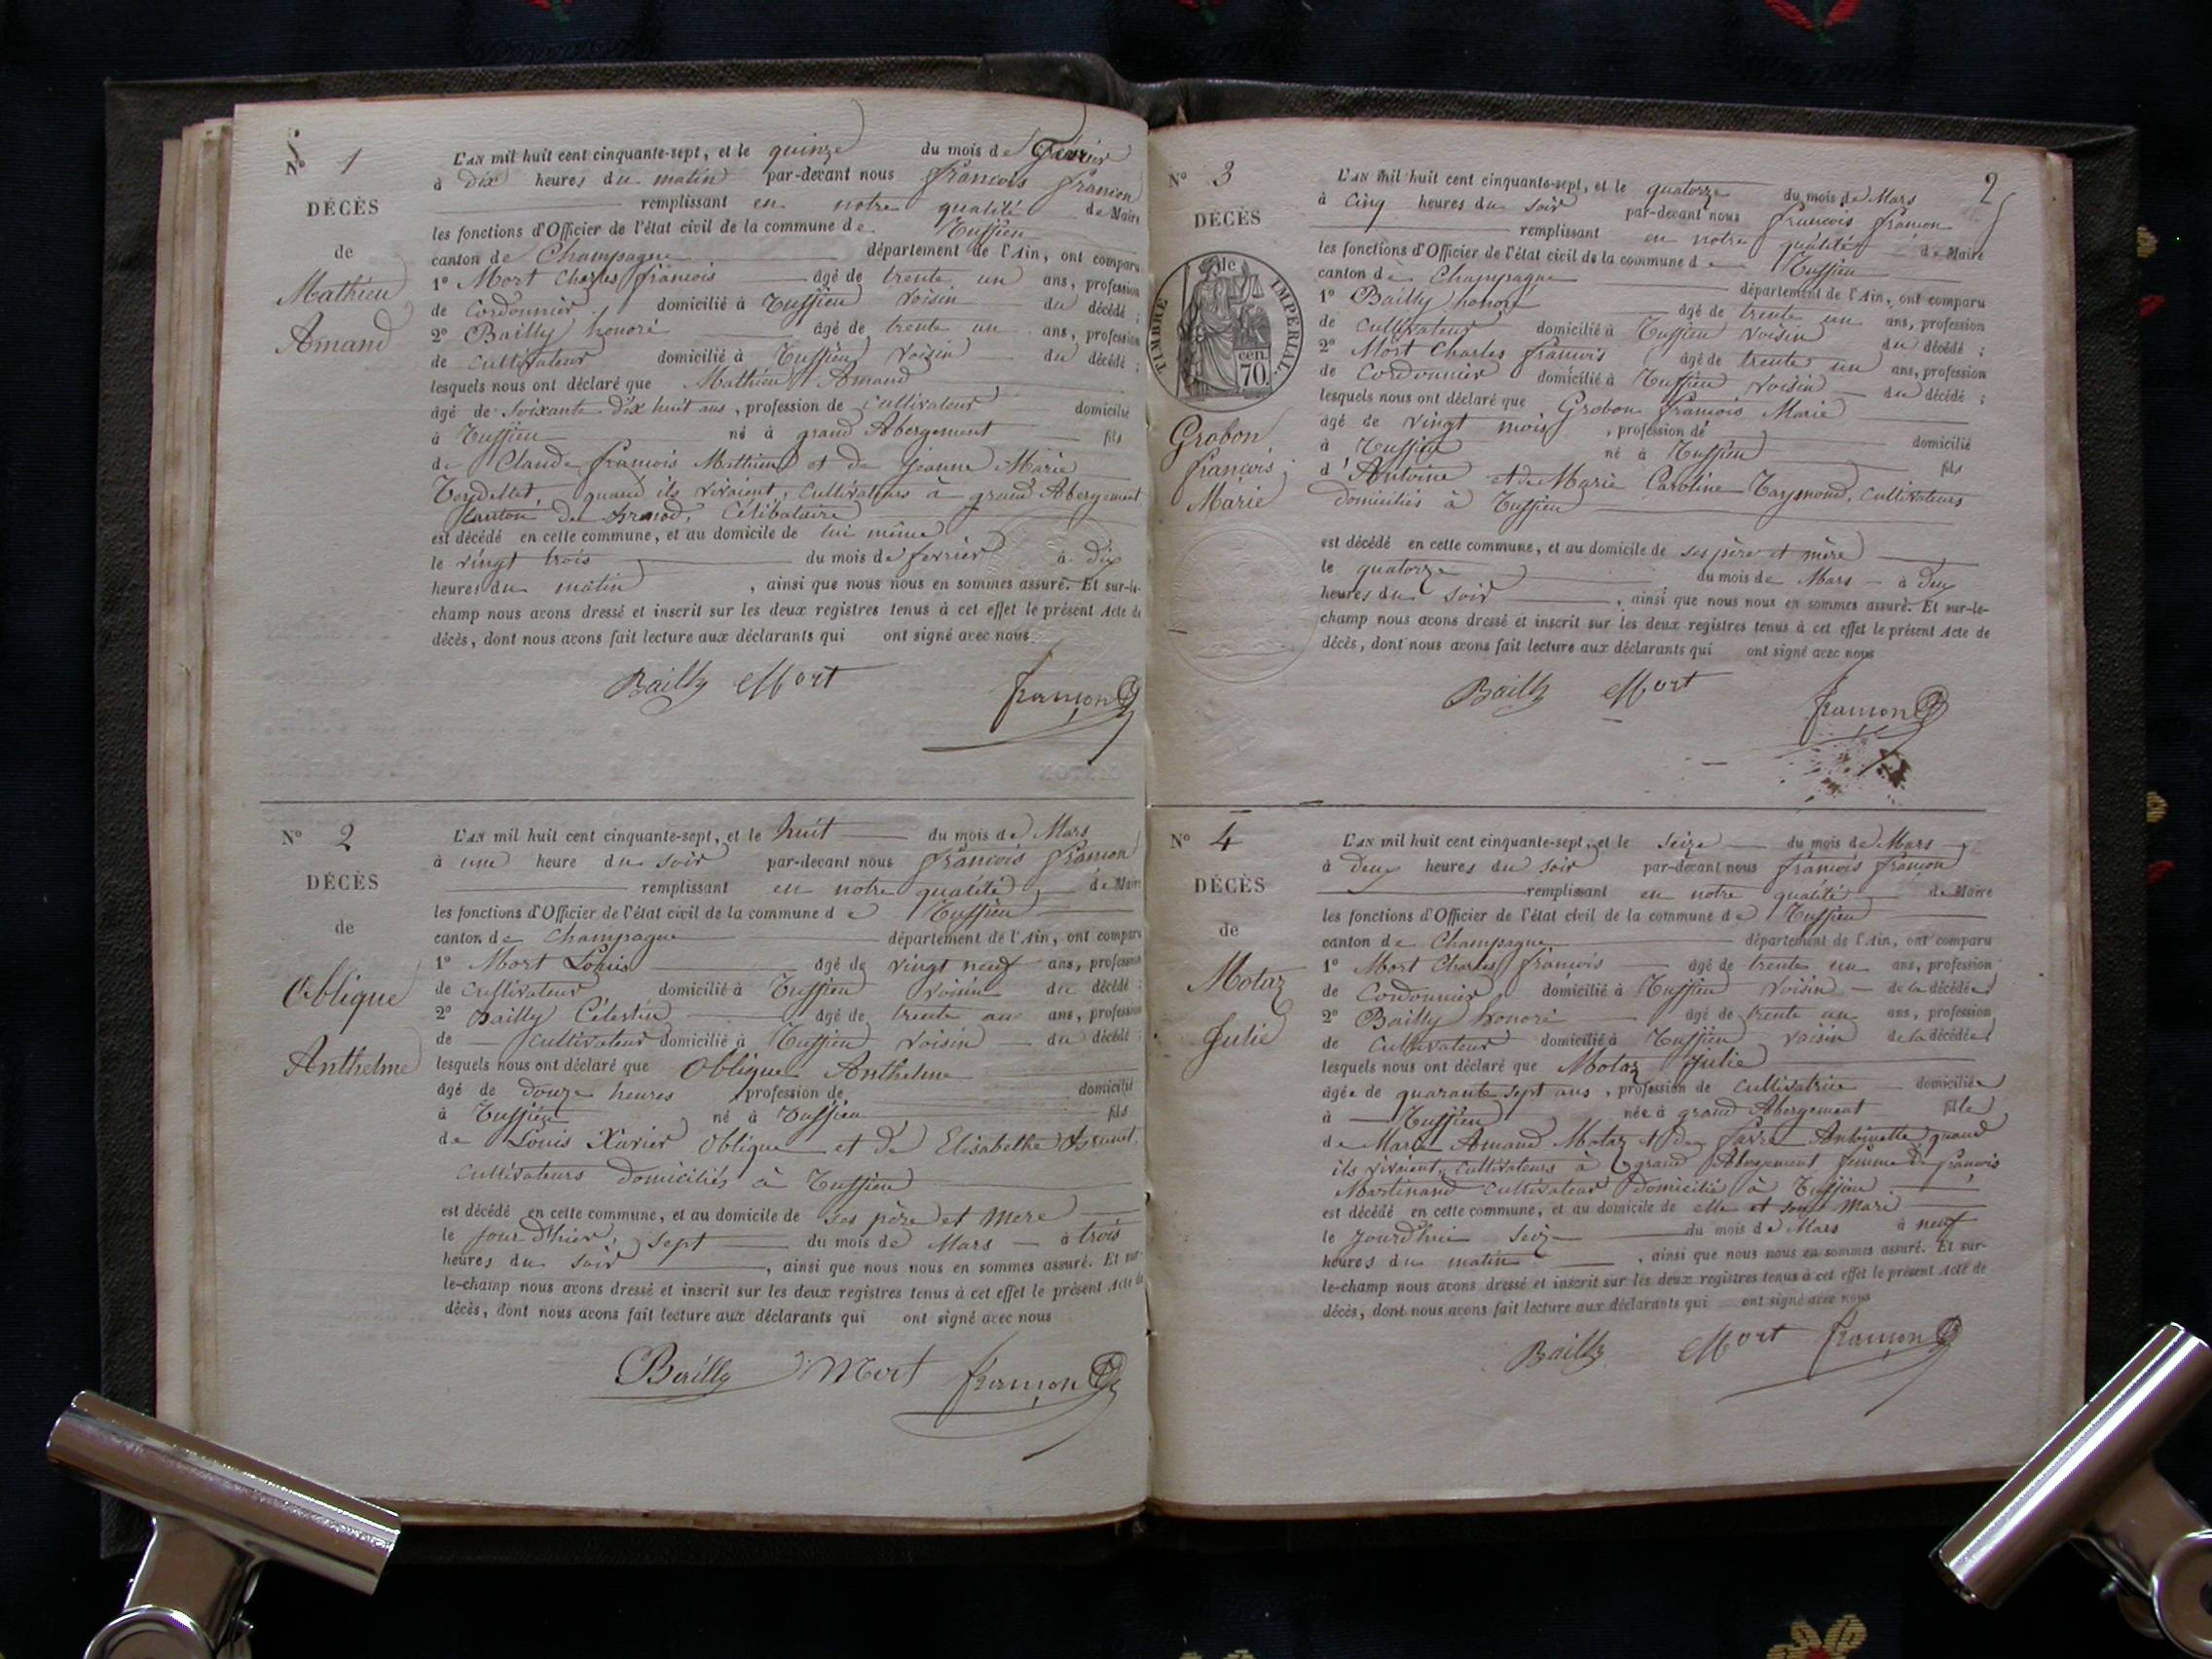 N° 1
DÉCÈS
de
Mathieu
Amand
L'AN mil huit cent cinquante-sept, et le quinze du mois de
à Dix heures du matin par-devant nous françois françon
remplissant en notre qualité de Maire
les fonctions d'Officier de l'état civil de la commune de
canton de Champagne département de l'Ain, ont comparu
1° Mort Charles françois âgé de trente un ans, profession
de Cordonnier domicilié à voisin du décédé ;
2° Bailly honoré âgé de trente un ans, profession
de cultivateur domicilié à voisin du décédé ;
lesquels nous ont déclaré que Mathieu Amand
âgé de soixante dix huit ans, profession de cultivateur domicilié
à né à grand Abergement fils
de Claude françois Mathieu et de jeanne Marie
quand ils vivaient, cultivateurs à grand Abergement
canton de Brénod, Célibataire
est décédé en cette commune, et au domicile de lui même
le vingt trois du mois de fevrier à dix
heures du matin , ainsi que nous nous en sommes assuré. Et sur-le-
champ nous avons dressé et inscrit sur les deux registres tenus à cet effet le présent Acte de
décès, dont nous avons fait lecture aux déclarants qui ont signé avec nous
Bailly Mort françon
N° 2
DÉCÈS
de
Oblique
Anthelme
L'AN mil huit cent cinquante-sept, et le huit du mois de Mars
à une heure du soir par-devant nous françois françon
remplissant en notre qualité de Maire
les fonctions d'Officier de l'état civil de la commune de
canton de Champagne département de l'Ain, ont comparu
1° Mort Louis âgé de vingt neuf ans, profession
de cultivateur domicilié à voisin du décédé ;
2° Bailly Célestin âgé de trente un ans, profession
de cultivateur domicilié à voisin du décédé ;
lesquels nous ont déclaré que Oblique Anthelme
âgé de douze heures profession de domicilié
à né à fils
de Louis Xavier Oblique et de Elisabethe Brunet
cultivateurs domiciliés à
est décédé en cette commune, et au domicile de ses père et mere
le jour d'hier, sept du mois de Mars à trois
heures du soir , ainsi que nous nous en sommes assuré. Et sur-
le-champ nous avons dressé et inscrit sur les deux registres tenus à cet effet le présent Acte de
décès, dont nous avons fait lecture aux déclarants qui ont signé avec nous
Bailly Mort françon
N° 3
2
DÉCÈS
de
TIMBRE IMPÉRIAL
cen.
70.
Grobon
françois
Marie
L'AN mil huit cent cinquante-sept, et le quatorze du mois de Mars
à cinq heures du soir par-devant nous françois françon
remplissant en notre qualité de Maire
les fonctions d'Officier de l'état civil de la commune de
canton de Champagne département de l'Ain, ont comparu
1° Bailly honoré âgé de trente un ans, profession
de cultivateur domicilié à voisin du décédé ;
2° Mort Charles françois âgé de trente un ans, profession
de Cordonnier domicilié à voisin du décédé ;
lesquels nous ont déclaré que Grobon françois Marie
âgé de vingt mois, profession de domicilié
à né à fils
d'Antoine et de Marie Caroline cultivateurs
domiciliés à
est décédé en cette commune, et au domicile de ses père et mère
le quatorze du mois de Mars à deux
heures du soir , ainsi que nous nous en sommes assuré. Et sur-le-
champ nous avons dressé et inscrit sur les deux registres tenus à cet effet le présent Acte de
décès, dont nous avons fait lecture aux déclarants qui ont signé avec nous
Bailly Mort françon
N° 4
DÉCÈS
de
Motaz
Julie
L'AN mil huit cent cinquante-sept, et le seize du mois de Mars
à deux heures du soir par-devant nous françois françon
remplissant en notre qualité de Maire
les fonctions d'Officier de l'état civil de la commune de
canton de Champagne département de l'Ain, ont comparu
1° Mort Charles françois âgé de trente un ans, profession
de Cordonnier domicilié à voisin de la décédée
2° Bailly honoré âgé de trente un ans, profession
de cultivateur domicilié à voisin de la décédée
lesquels nous ont déclaré que Motaz Julie
âgée de quarante sept ans, profession de cultivatrice domiciliée
à née à grand Abergement fille
de Marie Amand Motaz et de favre Antoinette quand
ils vivaient cultivateurs à grand Abergement femme de françois
Martinand cultivateur domicilié à
est décédé en cette commune, et au domicile de elle et son Mari
le jourd'hui seize du mois de Mars à neuf
heures du matin , ainsi que nous nous en sommes assuré. Et sur-
le-champ nous avons dressé et inscrit sur les deux registres tenus à cet effet le présent Acte de
décès, dont nous avons fait lecture aux déclarants qui ont signé avec nous
Bailly Mort françon